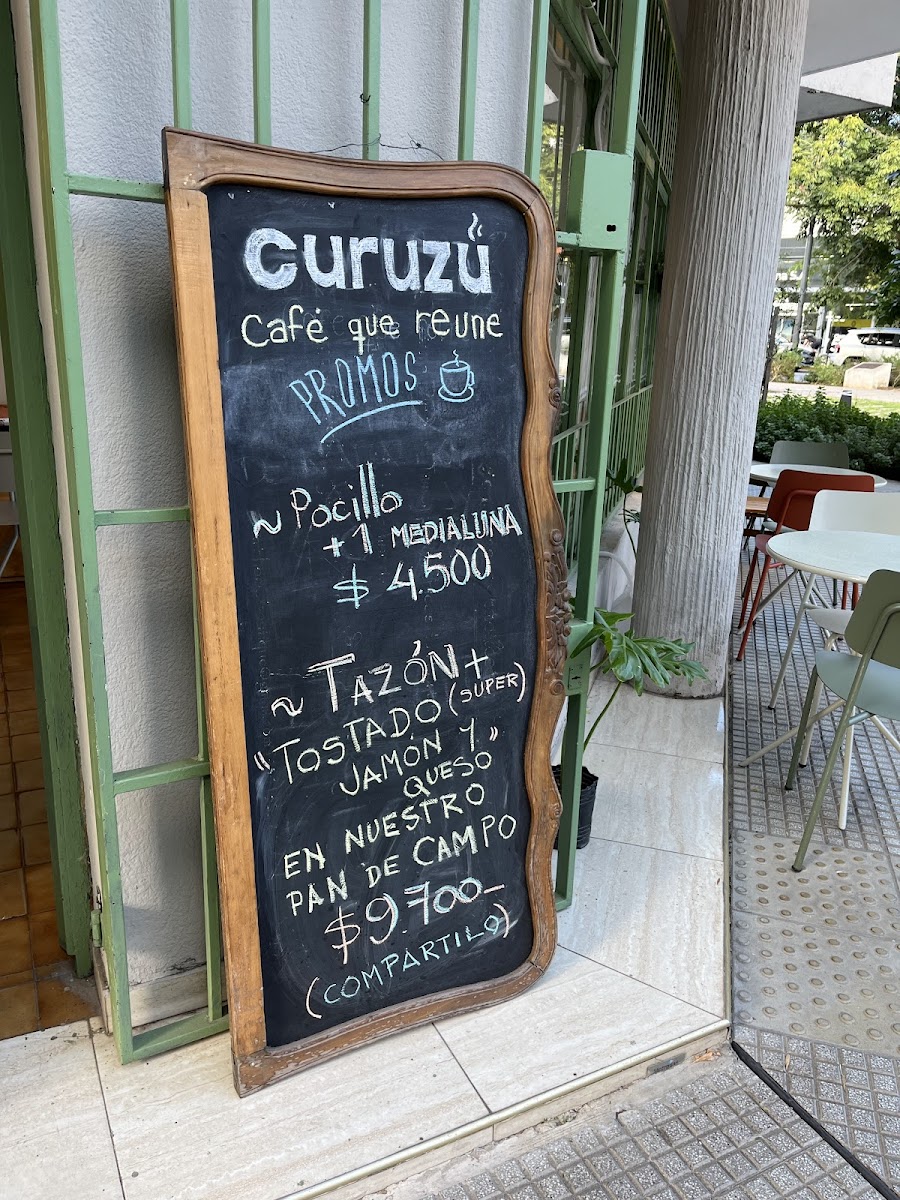 curuzú
Café que reune
PROMOS
~ Pocillo
+1 MEDIALUNA
$ 4.500
~ TAZÓN +
"TOSTADO (SUPER)
JAMÓN Y
QUESO"
EN NUESTRO
PAN DE CAMPO
$9.700-
(COMPARTILO)